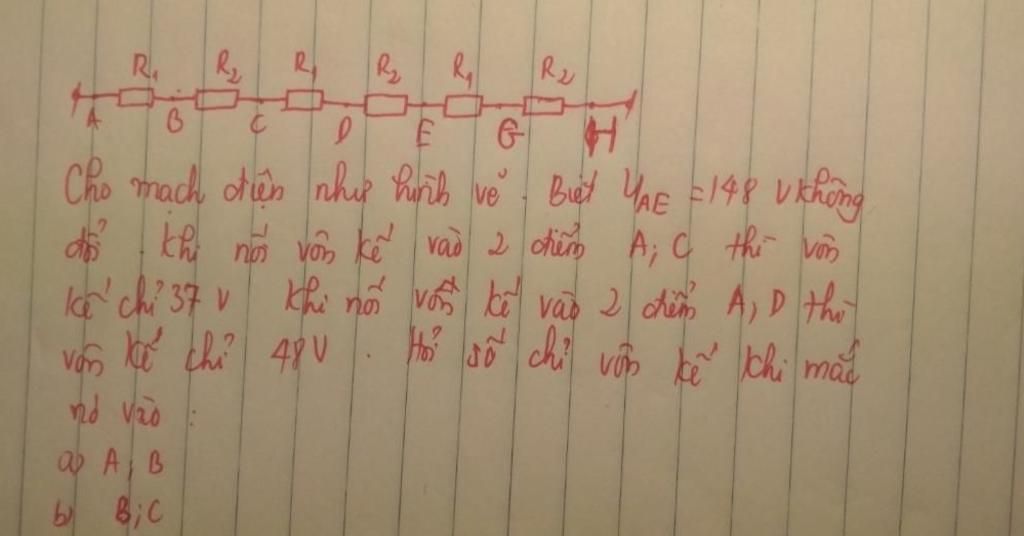 R₁ R₂ R₁ R₂ R₁ R₂
A B C D E G H
Cho mạch điện như hình vẽ. Biết U_AE = 148 V không
đổi. Khi nối vôn kế vào 2 điểm A; C thì vôn
kế chỉ 37 V Khi nối vôn kế vào 2 điểm A, D thì
vôn kế chỉ 48V. Hỏi số chỉ vôn kế khi mắc
nó vào:
a) A, B
b) B; C